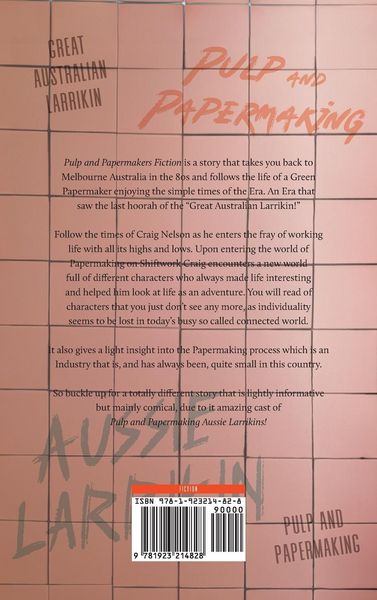 GREAT
AUSTRALIAN
LARRIKIN
PULP AND
PAPERMAKING
Pulp and Papermakers Fiction is a story that takes you back to
Melbourne Australia in the 80s and follows the life of a Green
Papermaker enjoying the simple times of the Era. An Era that
saw the last hoorah of the “Great Australian Larrikin!”
Follow the times of Craig Nelson as he enters the fray of working
life with all its highs and lows. Upon entering the world of
Papermaking on Shiftwork Craig encounters a new world
full of different characters who always made life interesting
and helped him look at life as an adventure. You will read of
characters that you just don't see any more, as individuality
seems to be lost in today's busy so called connected world.
It also gives a light insight into the Papermaking process which is an
Industry that is, and has always been, quite small in this country.
So buckle up for a totally different story that is lightly informative
but mainly comical, due to it amazing cast of
Pulp and Papermaking Aussie Larrikins!
AUSSIE
LARRIKIN
FICTION
ISBN 978-1-923214-82-8
90000
9 781923 214828
PULP AND
PAPERMAKING